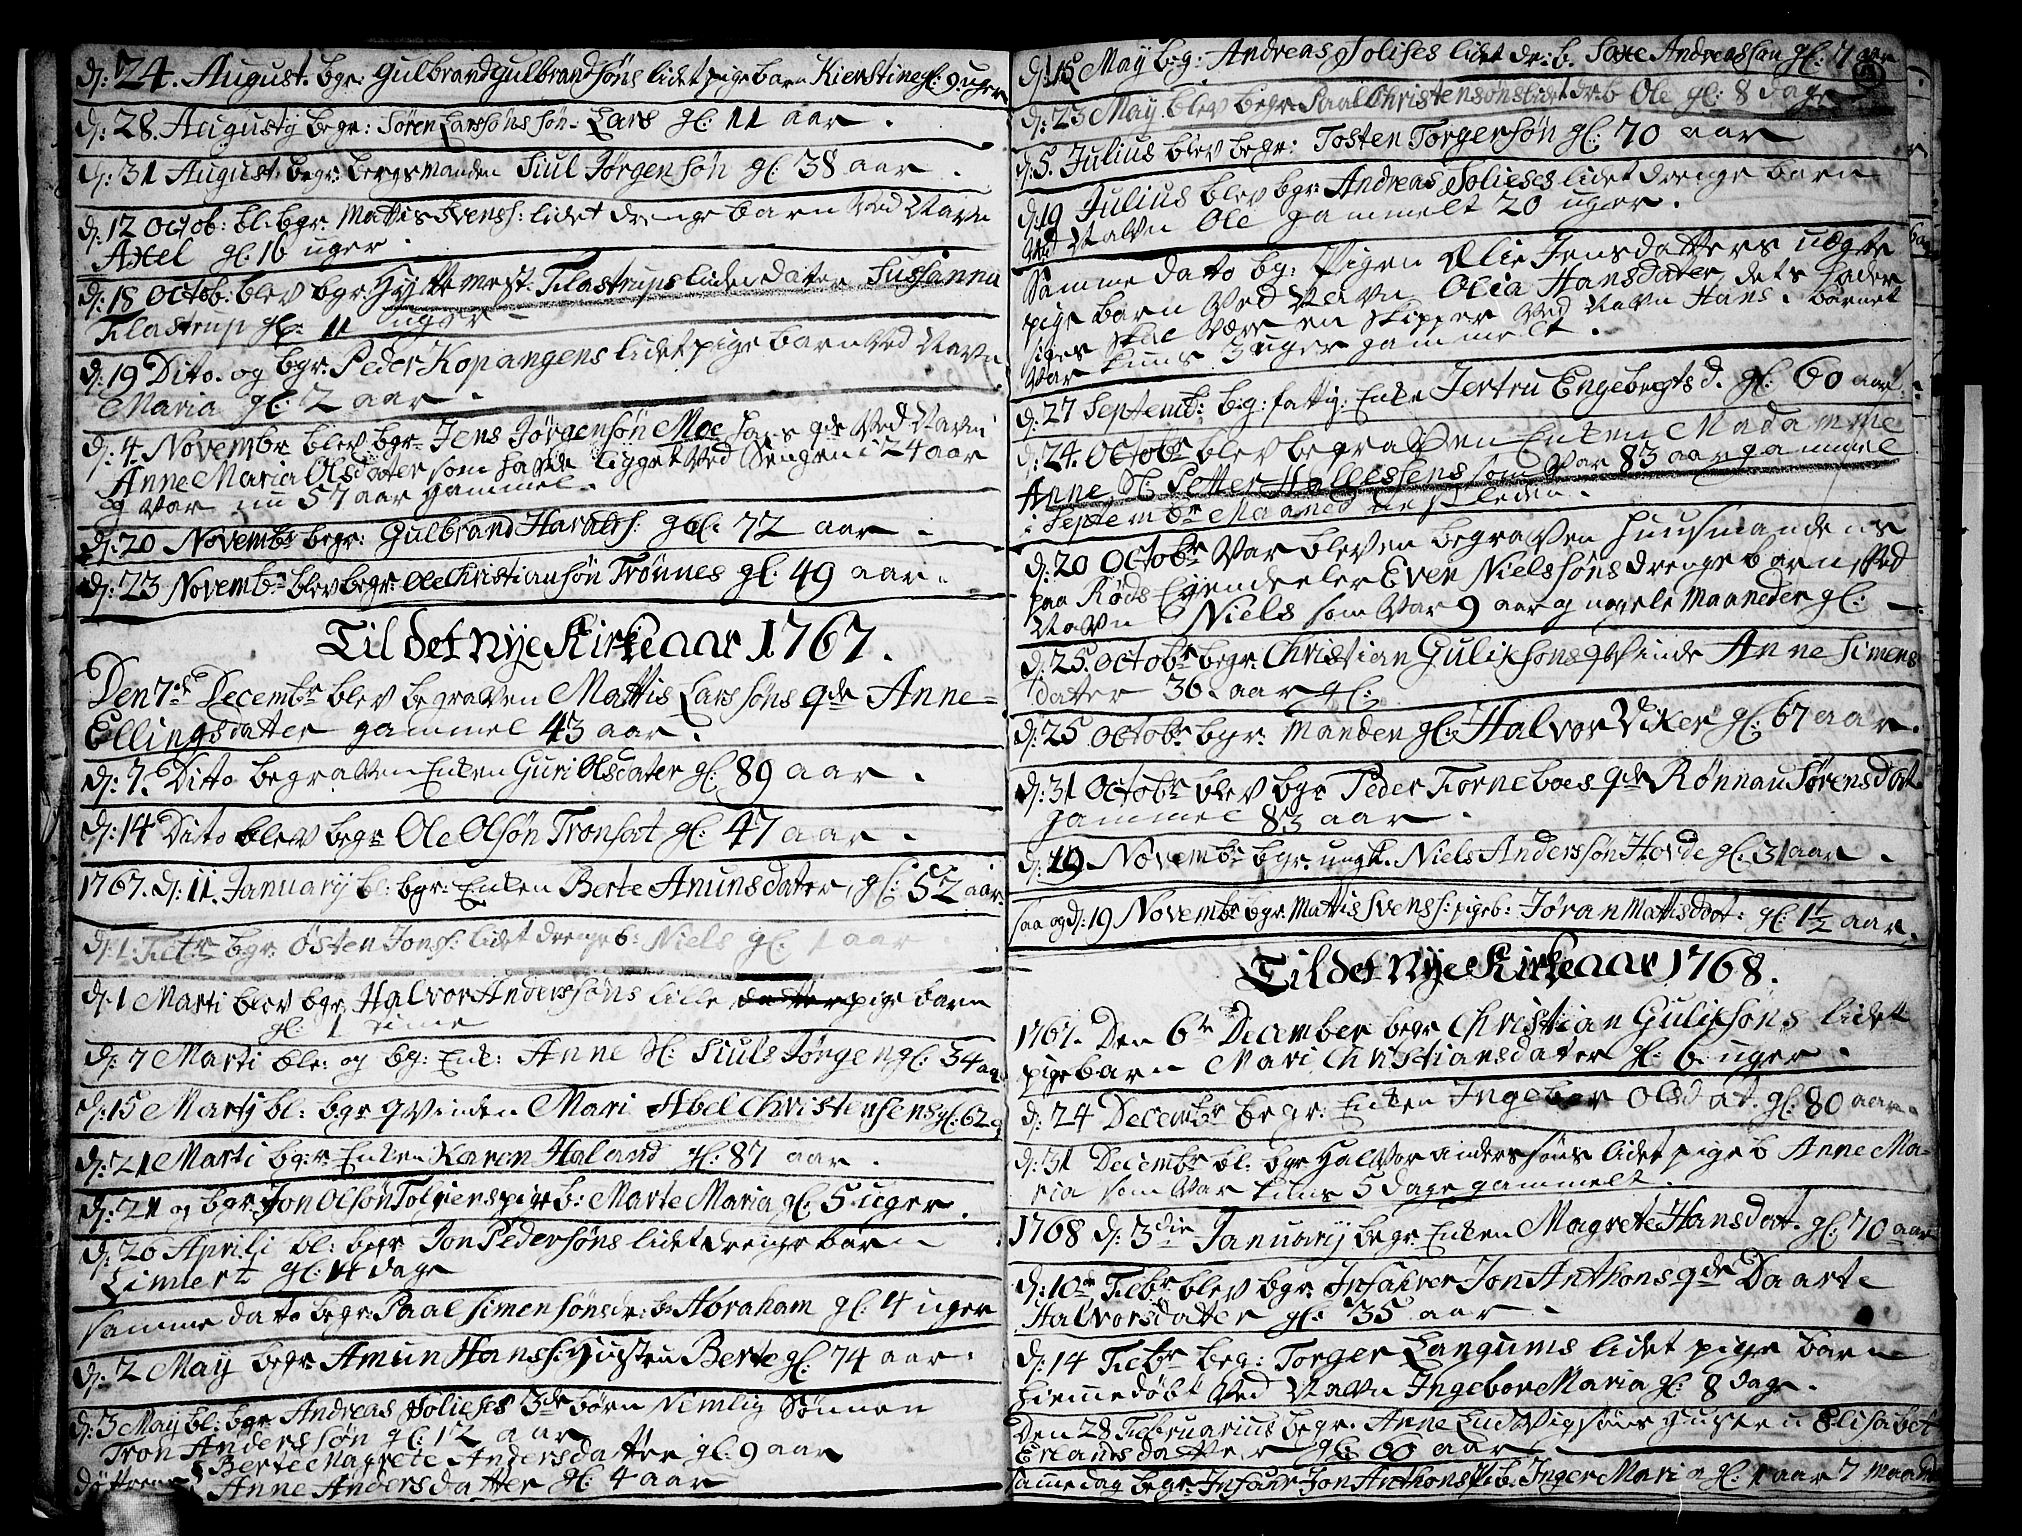 d: 24. August: bgr: Gulbrand Gulbrandsøns lidet pige barn Kierstine gl: 9: uger
d: 28. Augusty begr: Søren Larssøns søn: Lars gl: 11 aar.
d: 31 August: begr: bergsmanden Siul Jørgensøn gl: 38 aar.
d: 12 Octob: bl: bgr: Mattis Svenss: lidet drenge barn ved Navn
Axel gl: 16 uger.
d: 18 Octob: blev bgr: Hyttemest: Flastrups liden dater Sussanna
Flastrup gl: 11 uger
d: 19 Dito. og bgr: Peder Kopangens lidet pige barn ved Navn
Maria gl: 2 aar.
d: 4. Novembr blev bgr: Jens Jørgensøn Moe hans qde ved Navn
Anne Maria Olsdater som hafde ligget ved Sengen i 24 aar
og var nu 57 aar gammel.
d: 20 Novembr begr: Gulbrand Haralds: gl: 72 aar.
d: 23 Novembr blev begr: Ole Christiansøn Trønnes gl: 49 aar.
Til det Nye Kirkeaar 1767.
Den 7de Decembr blev begraven Mattis Larssøns qde Anne
Ellingsdatter gammel 43 aar.
d: 7. Dito begraven Enken Guri Olsdater gl: 89 aar.
d: 14 Dito blev begr Ole Olsøn Tronsat gl: 47 aar.
1767. d: 11. Januarij bl: bgr: Enken Berte Anunsdater gl: 52 aar.
d: 1. Febr: bgr: Østen Jonss: lidet drenge b: Niels gl: 1 aar
d: 1 Marti blev bgr: Halvor Anderssøns lille pige barn
gl: 1 time
d: 7 Marti ble: og bg: Enk: Anne Sl: Siuls Jørgen gl: 34 aar
d: 15 Martij bl: bgr qvinden Mari Abel Christensens gl: 62
d: 21 Marti bgr: Enken Karen Haland gl: 87 aar.
d: 21 og bgr: Jon Olsøn Tolgens pige b: Marte Maria gl: 5 uger.
d: 20 Aprili bl: bgr Jon Pedersøns lidet drenge barn
Limert gl: 11 dage
samme dato begr: Paal Simensøns dr: b: Abraham gl: 4 uger
d: 2 May begr: Amun Hanss: Hustru Berte gl: 74 aar.
d: 3 May bl: bgr Andreas Solieses 3de børn Nemlig Sønnen
Tron Anderssøn gl: 12 aar
Berte Magrete Andersdatter gl: 9 aar
døttrene: Anne Andersdatter gl: 4 aar
d: 15 May bg: Andreas Solises lidet dr: b. Saxe Andreassøn gl: 7 aar
d: 23 May blev begr: Paal Christensøns lidet dr: b Ole gl: 8 dage
d: 5. Julius blev begr: Tosten Torgersøn gl: 70 aar
d: 19 Julius blev bgr: Andreas Solieses lidet drenge barn
ved Navn Ole gammelt 20 uger.
Samme dato bg: Pigen Olie Jensdatters uægte
pige barn ved Navn Olia Hansdater, dets Fader
siges skal være en skipper ved Navn Hans. barnet
var kuns 3 uger gammelt.
d: 27 Septemb: bg: fattig: Enke Jertru Engebregtsd. gl: 60 aar.
d: 24. Octobr blev begraven Enken Madamme
Anne Sl: Petter Hollessens som var 83 aar gammel
i Septembr Maaned
d: 20 Octobr var bleven begraven Huusmandens
paa Røds Eyendeeler Even Nielssøns drenge barn, ved
Navn Niels som var 9 aar og nogele Maaneder gl:
d: 25. Octobr begr: Christian Guliksøns qvinde Anne Simens
datter 36 aar gl:
d: 25 Octobr bgr: Manden gl: Halvor Viker gl: 67 aar.
d: 31 Octobr blev bgr: Peder Torneboes qde Rønnau Sørensdat
gammel 83 aar.
d: 19 Novembr bgr: ungk. Niels Anderssøn Hovde gl: 31 aar.
saa og d: 19 Novembr bgr: Mattis Svenss: pigeb: Jøran Mattisdat: gl: 1½ aar.
Til det Nye Kirkeaar 1768.
1767. Den 6te December begr Christian Guliksøns lidet
pigebarn Mari Christiansdater gl: 6 uger.
d: 24 Decembr begr: Enken Ingebor Olsdat: gl: 80 aar
d: 31 Decembr bl: bgr Halvor anderssøns lidet pige b Anne Ma-
ria som var kuns 5 dage gammelt.
1768 d: 3die Januarij begr Enken Magrete Hansdat. gl: 70 aar
d: 10de Febr blev bgr: Insahrer Jon Anthons qde Daarte
Halvorsdatter gl: 35 aar.
d: 14 Febr beg: Torger Langums lidet pige barn
hiemmedøbt ved Navn Ingebor Maria gl: 8 dage.
Den 28 Februarius begr. Arne Ludvigsøns Hustru Elisabet
Erlandsdatter gl: 60 aar
samme dag begr: Insahr Jon Anthons P: b: Inger Maria gl: 1 aar 7 maand